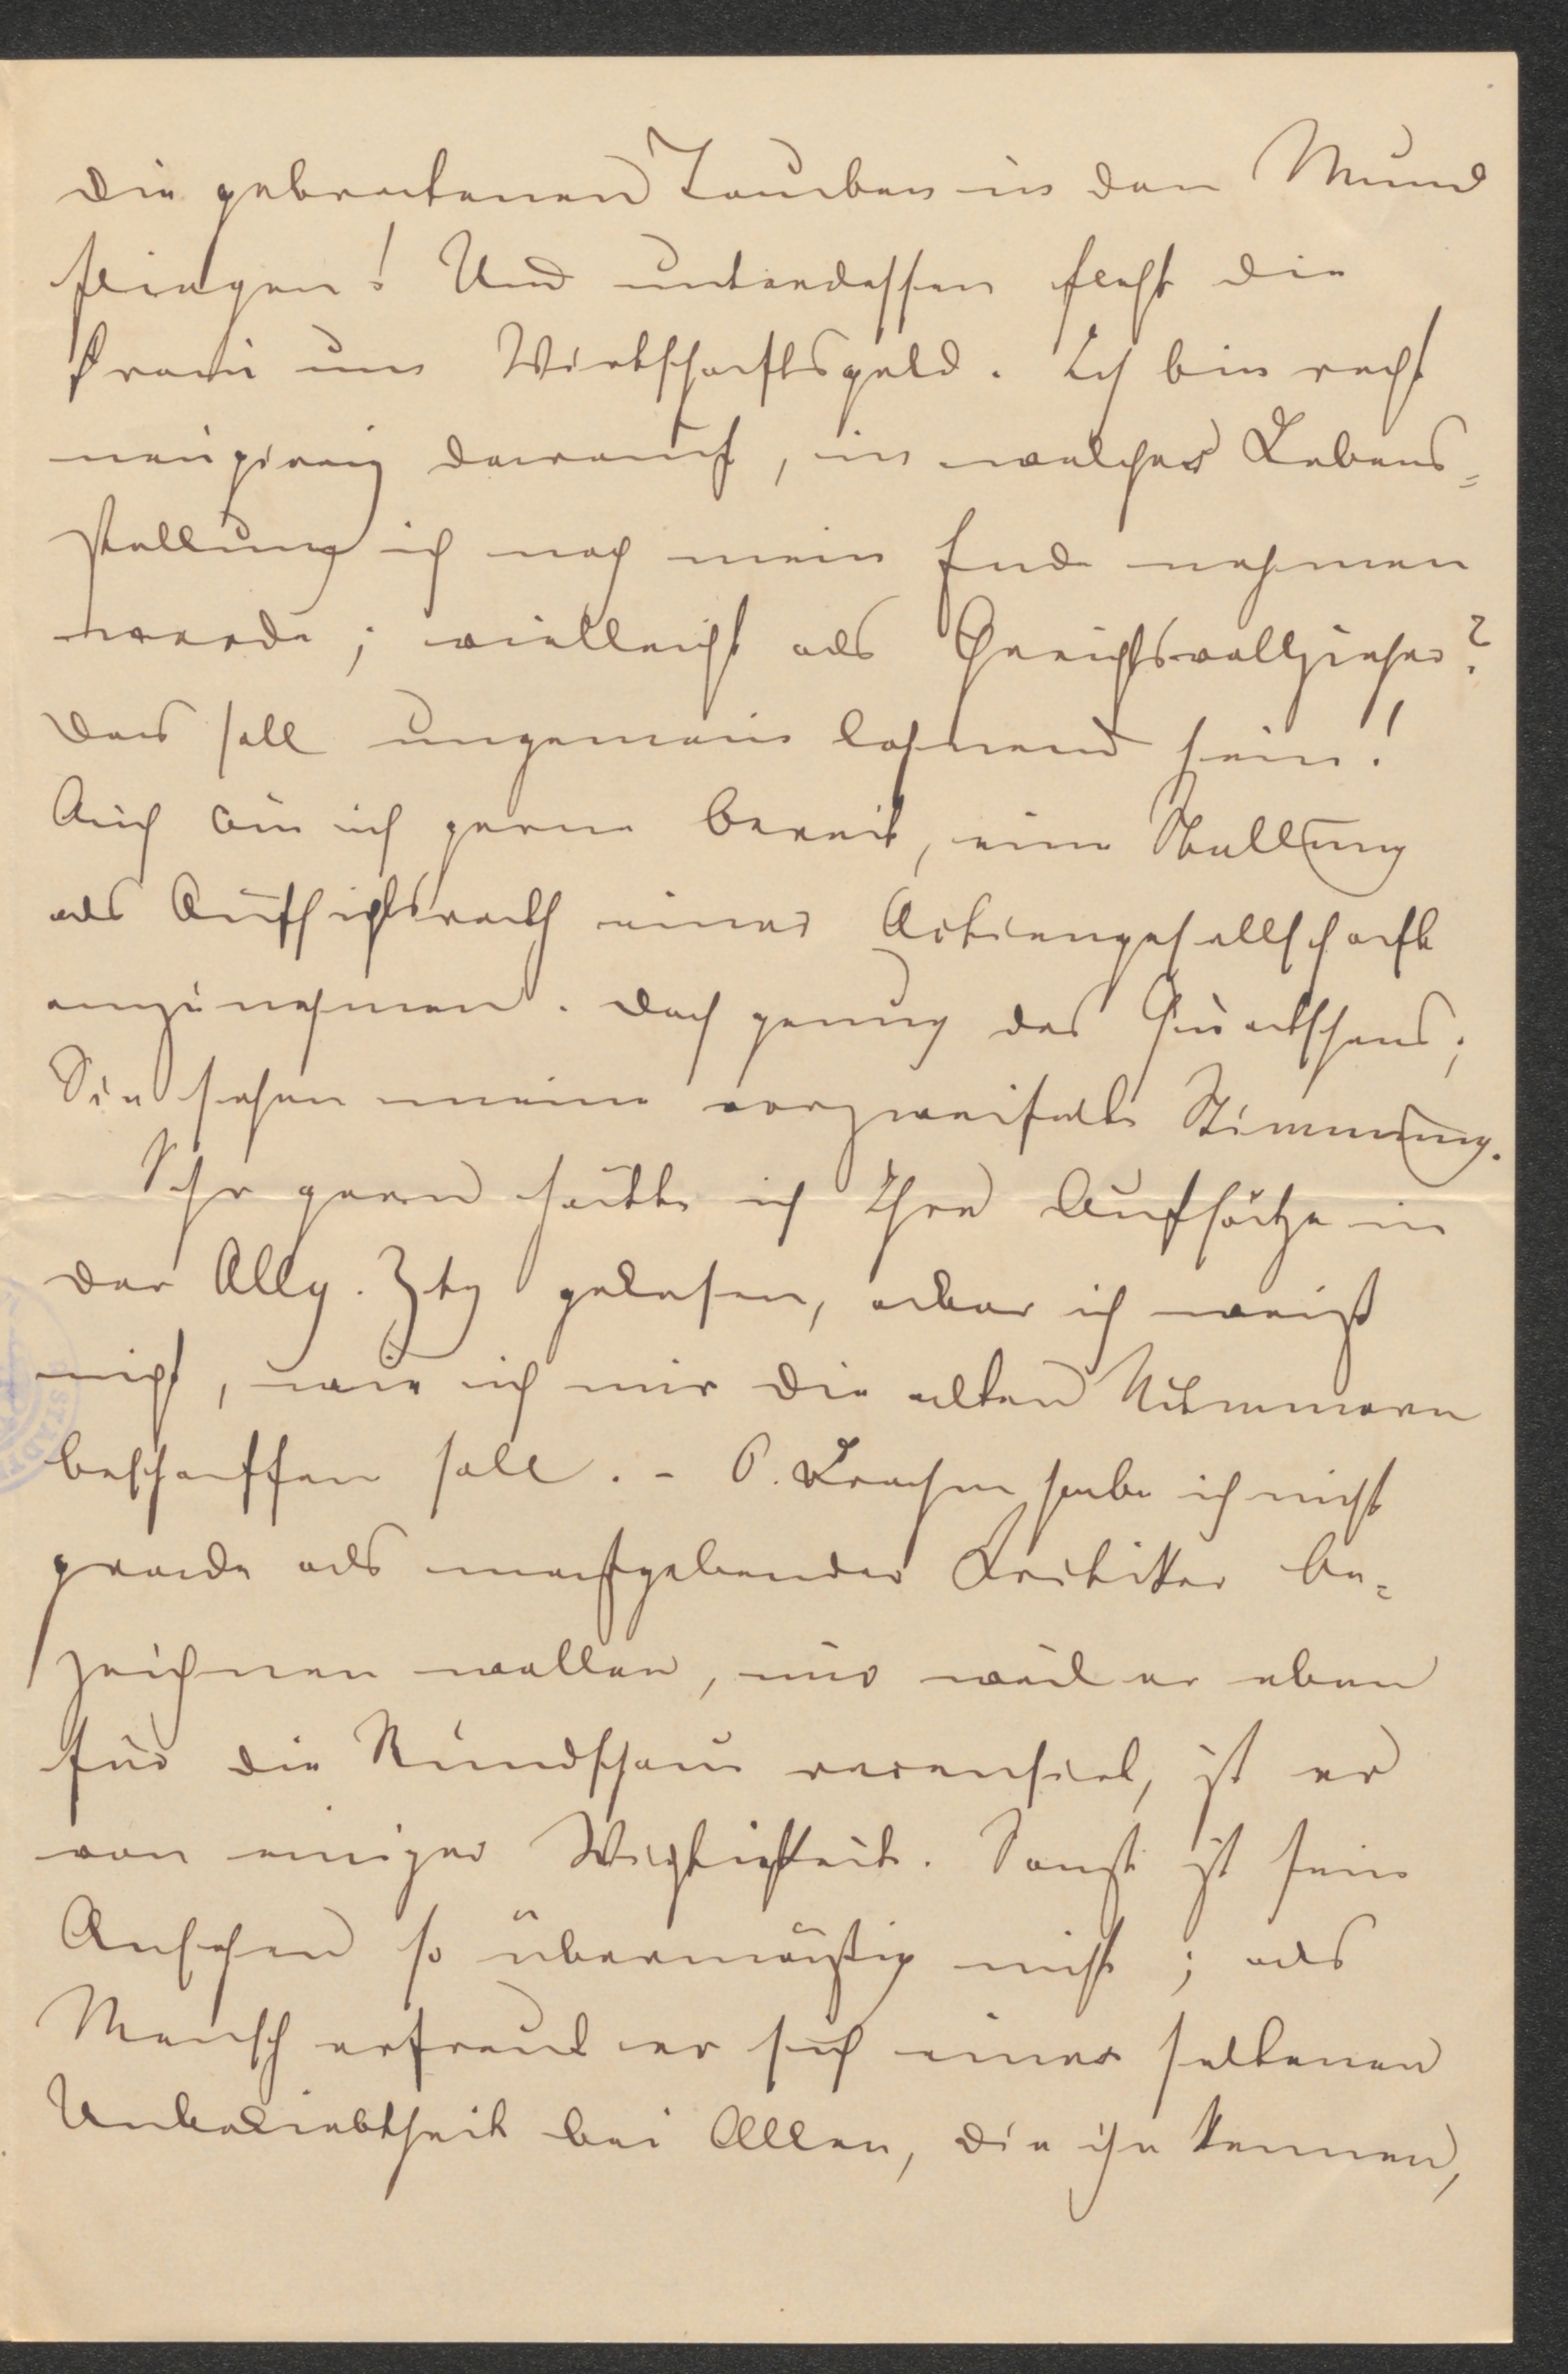 die gebratenen Tauben in den Mund
fliegen! Und unterdessen fleht die
Frau um Wirtschaftsgeld. Ich bin recht
neugierig darauf, in welcher Lebens=
stellung ich noch mein Ende nehmen
werde; vielleicht als Gerichtsvollzieher?
Das soll ungemein lohnend sein!
Auch bin ich gerne bereit, eine Stellung
als Aufsichtsrath einer Actiengesellschaft
anzunehmen. Doch genug des Quatschens;
Sie sehen meine verzweifelte Stimmung.
Sehr gern hätte ich Ihre Aufsätze in
der Allg. Ztg gelesen, aber ich weiß
nicht, wie ich mir die alten Nummern
beschaffen soll. - C. Krebs habe ich nicht
grade als maßgebenden Kritiker be=
zeichnen wollen, nur weil er eben
für die Rundschau recensirt, ist er
von einiger Wichtigkeit. Sonst ist sein
Ansehen so übermäßig nicht; als
Mensch erfreut er sich einer seltenen
Unbeliebtheit bei Allen, die ihn kennen,